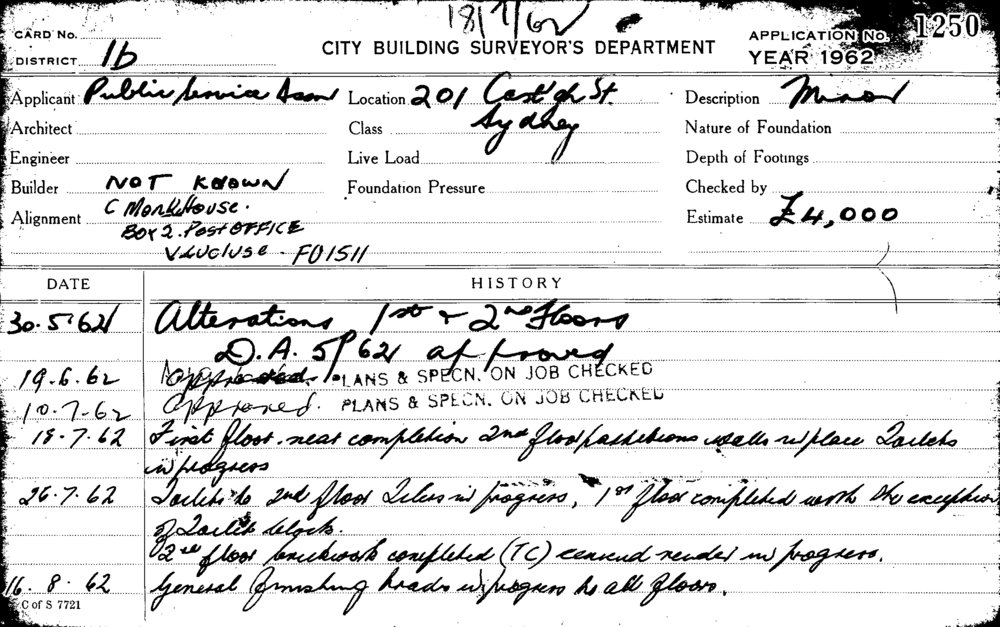 18/7/62
CARD No.
DISTRICT 1b
CITY BUILDING SURVEYOR'S DEPARTMENT
APPLICATION No. 1250
YEAR 1962
Applicant Public Service Assn Location 201 Cast'gh St. Description Minor
Architect Class Sydney Nature of Foundation
Engineer Live Load Depth of Footings
Builder NOT KNOWN Foundation Pressure Checked by
Alignment C MonkHouse. Estimate £4,000
BOX 2. Post OFFICE
VAUCLUSE - FU1511
DATE HISTORY
30.5.62 Alterations 1st + 2nd Floors
D.A. 5/62 approved
19.6.62 PLANS & SPECN. ON JOB CHECKED
10-7-62 Approved. PLANS & SPECN. ON JOB CHECKED
18.7.62 First floor near completion 2nd floor partitions walls in place Toilets
in progress
26.7.62 Toilets to 2nd floor Tilers in progress, 1st floor completed with the exception
of Toilet block.
2nd floor brickwork completed (TC) cement render in progress.
16.8.62 General finishing trades in progress to all floors.
C of S 7721